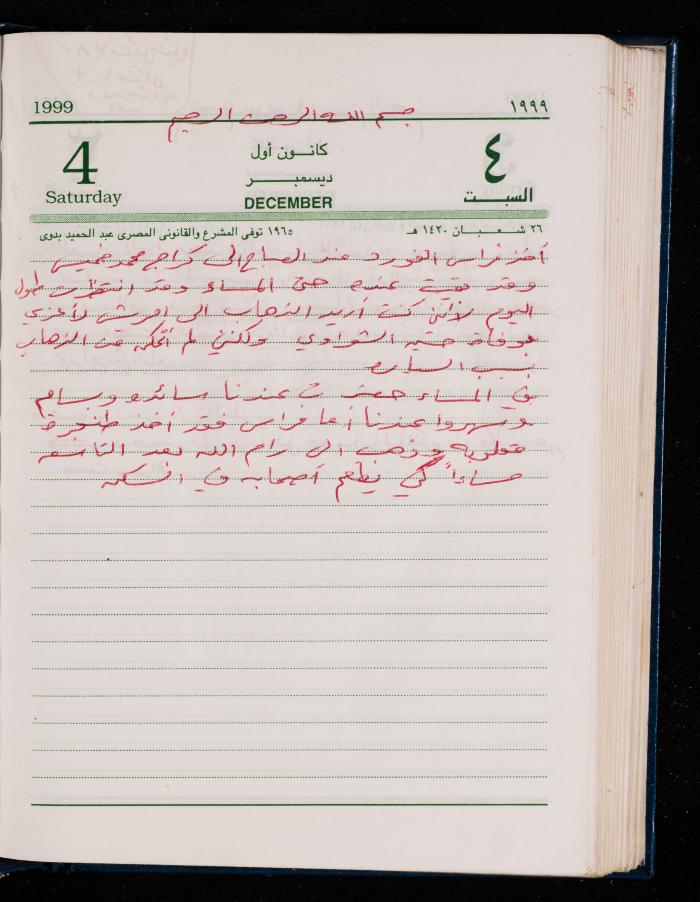 1999
١٩٩٩
بسم الله الرحمن الرحيم
4
Saturday
كانــون أول
ديسمبــر
DECEMBER
٤
السبــت
٢٦ شـعـبـان ١٤٢٠ هـ
١٩٦٥ توفى المشرع والقانونى المصرى عبد الحميد بدوى
أخذ فراس الفورد منذ الصباح الى كراج محمد خميس
وقد بقيت عنده حتى المساء وقد انتظرت طول
اليوم لأنني كنت أريد الذهاب الى لأعزي
بوفاة الشواوي ولكنني لم أتمكن من الذهاب
بسبب السيارة
في المساء حضرت عندنا سائده وبسام
وسهروا عندنا أما فراس فقد أخذ طنجرة
مقلوبة وذهب الى رام الله بعد التاسعة
مساءاً كي يطعم أصحابه في السكن